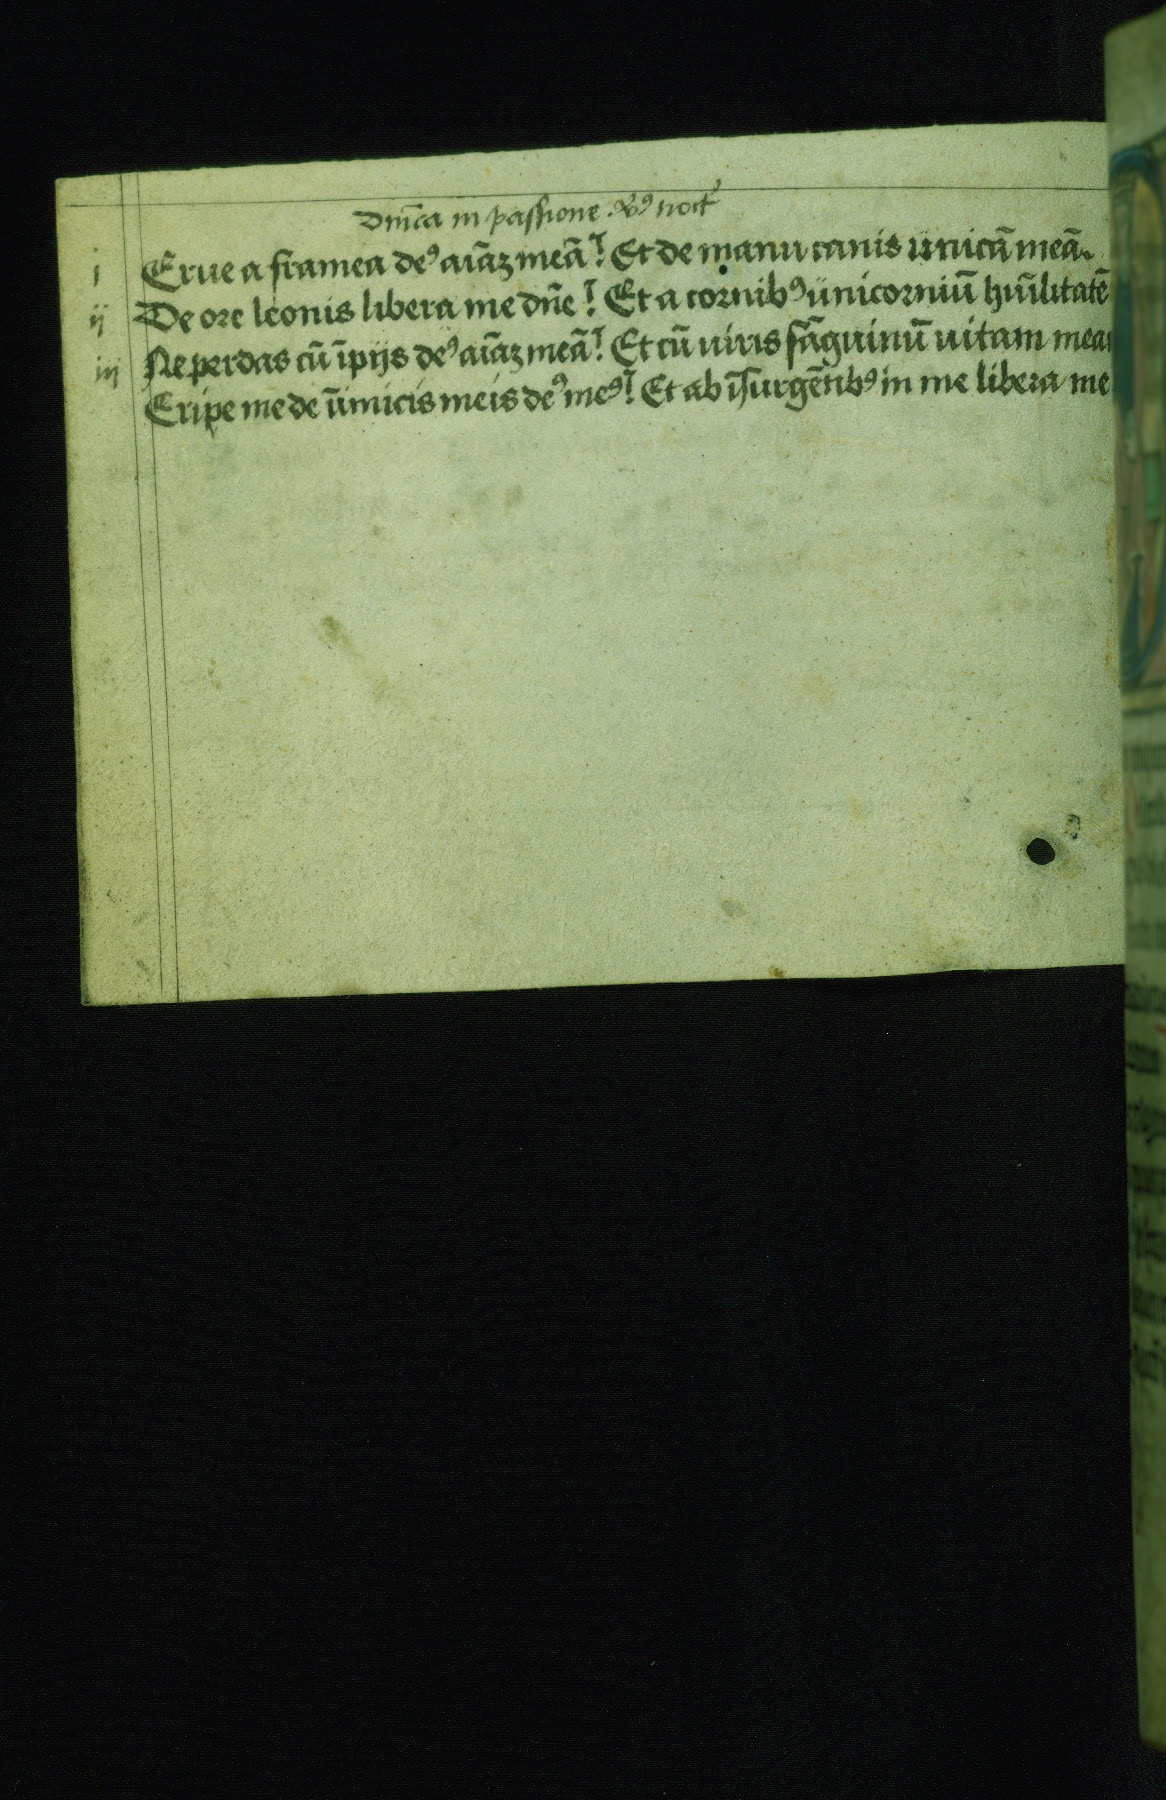 Dm̄ca in passione. noct
i Erue a framea deꝰ aīaꝫ meā! Et de manu canis ünicā meā.
ij De ore leonis libera me dn̄e! Et a cornibꝰ ünicorniū hūilitatē
iij Ne perdas cū īpijs deꝰ aīaꝫ meā! Et cū uiris sāguinū uitam meam
Eripe me de inīmicis meis deꝰ meꝰ! Et ab īsurgētibꝰ in me libera me